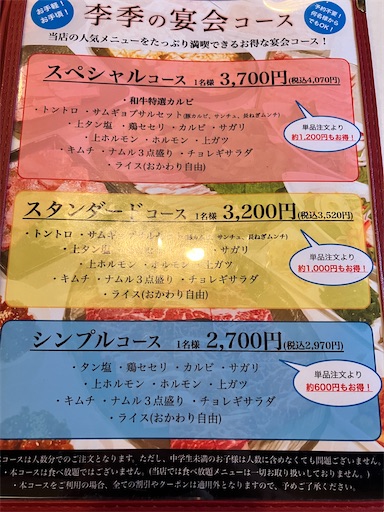 お手軽!
お手頃!
李季の宴会コース
予約不要!
何名様から
でもOK!
当店の人気メニューをたっぷり満喫できるお得な宴会コース!
スペシャルコース 1名様 3,700円(税込4,070円)
・和牛特選カルビ
・トントロ ・サムギョプサルセット(豚カルビ、サンチュ、長ねぎムンチ)
・上タン塩 ・鶏セセリ ・カルビ ・サガリ
・上ホルモン ・ホルモン ・上ガツ
・キムチ ・ナムル3点盛り ・チョレギサラダ
・ライス(おかわり自由)
単品注文より
約1,200円もお得!
スタンダードコース 1名様 3,200円(税込3,520円)
・トントロ ・サムギョプサルセット(豚カルビ、サンチュ、長ねぎムンチ)
・上タン塩 ・鶏セセリ ・カルビ ・サガリ
・上ホルモン ・ホルモン ・上ガツ
・キムチ ・ナムル3点盛り ・チョレギサラダ
・ライス(おかわり自由)
単品注文より
約1,000円もお得!
シンプルコース 1名様 2,700円(税込2,970円)
・タン塩 ・鶏セセリ ・カルビ ・サガリ
・上ホルモン ・ホルモン ・上ガツ
・キムチ ・ナムル3点盛り ・チョレギサラダ
・ライス(おかわり自由)
単品注文より
約600円もお得!
コースは人数分でのご注文となります。ただし、中学生未満のお子様は人数に含めなくても問題ございません。
・本コースは食べ放題ではございません。(当店では食べ放題メニューは一切お取り扱いしておりません。)
・本コースをご利用の場合、全ての割引やクーポンは適用外となりますので、予めご了承ください。